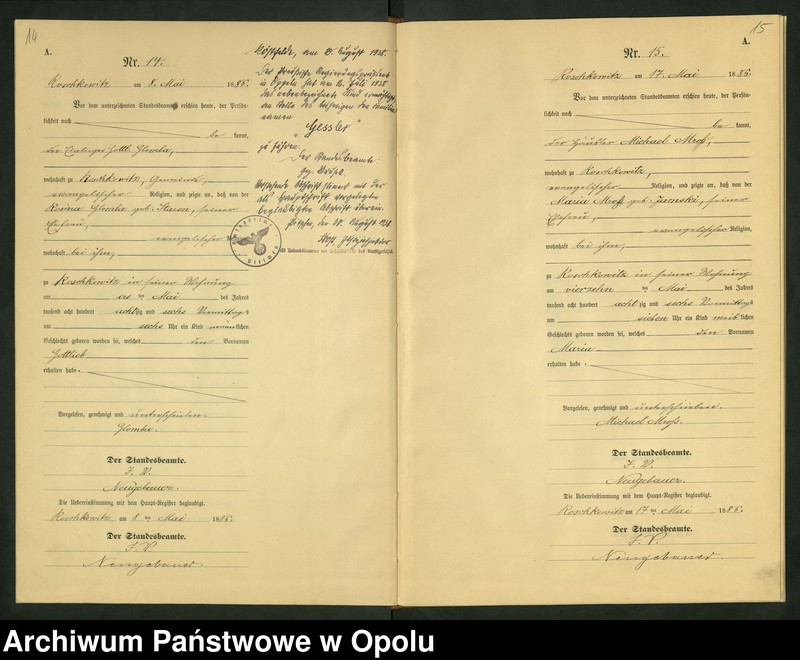 14
A.
Nr. 14.
Roschkowitz am 8. Mai 1886.
Vor dem unterzeichneten Standesbeamten erschien heute, der Persön-
lichkeit nach
be kannt,
der Einlieger Gottl. Glomba,
wohnhaft zu Roschkowitz, Gemeinde,
evangelischer Religion, und zeigte an, daß von der
Rosina Glomba geb. seiner
Ehefrau,
evangelischer
wohnhaft bei ihm,
zu Roschkowitz in seiner Wohnung
am ten Mai des Jahres
tausend acht hundert achtzig und sechs Vormittags
um sechs Uhr ein Kind männlichen
Geschlechts geboren worden sei, welches den Vornamen
Gottlieb
erhalten habe.
Vorgelesen, genehmigt und unterschrieben.
Glomba.
Der Standesbeamte.
J. V.
Neugebauer.
Die Uebereinstimmung mit dem Haupt-Register beglaubigt.
Roschkowitz am 8 ten Mai 1886.
Der Standesbeamte.
J. V.
Neugebauer.
am August 1938.
Der Preußische Regierungspräsident
in Oppeln hat am Juli 1938
das nebenbezeichnete Kind ermächtigt,
an Stelle des bisherigen den Familien
namen
"Gessler"
zu führen.
Der Standesbeamte
gez.
Vorstehende Abschrift stimmt mit der
als Hauptschrift vorgelegten
beglaubigten Abschrift überein.
Pitschen, den August 1938.
15
A.
Nr. 15.
Roschkowitz am 17. Mai 1886.
Vor dem unterzeichneten Standesbeamten erschien heute, der Persön-
lichkeit nach
be kannt,
der Häusler Michael Mroß,
wohnhaft zu Roschkowitz,
evangelischer Religion, und zeigte an, daß von der
Maria Mroß geb. seiner
Ehefrau,
evangelischer Religion,
wohnhaft bei ihm,
zu Roschkowitz in seiner Wohnung
am vierzehn ten Mai des Jahres
tausend acht hundert achtzig und sechs Vormittags
um sieben Uhr ein Kind weiblichen
Geschlechts geboren worden sei, welches den Vornamen
Maria
erhalten habe.
Vorgelesen, genehmigt und unterschrieben.
Michael Mroß.
Der Standesbeamte.
J. V.
Neugebauer.
Die Uebereinstimmung mit dem Haupt-Register beglaubigt.
Roschkowitz am 17 ten Mai 1886.
Der Standesbeamte.
J. V.
Neugebauer.
Archiwum Państwowe w Opolu